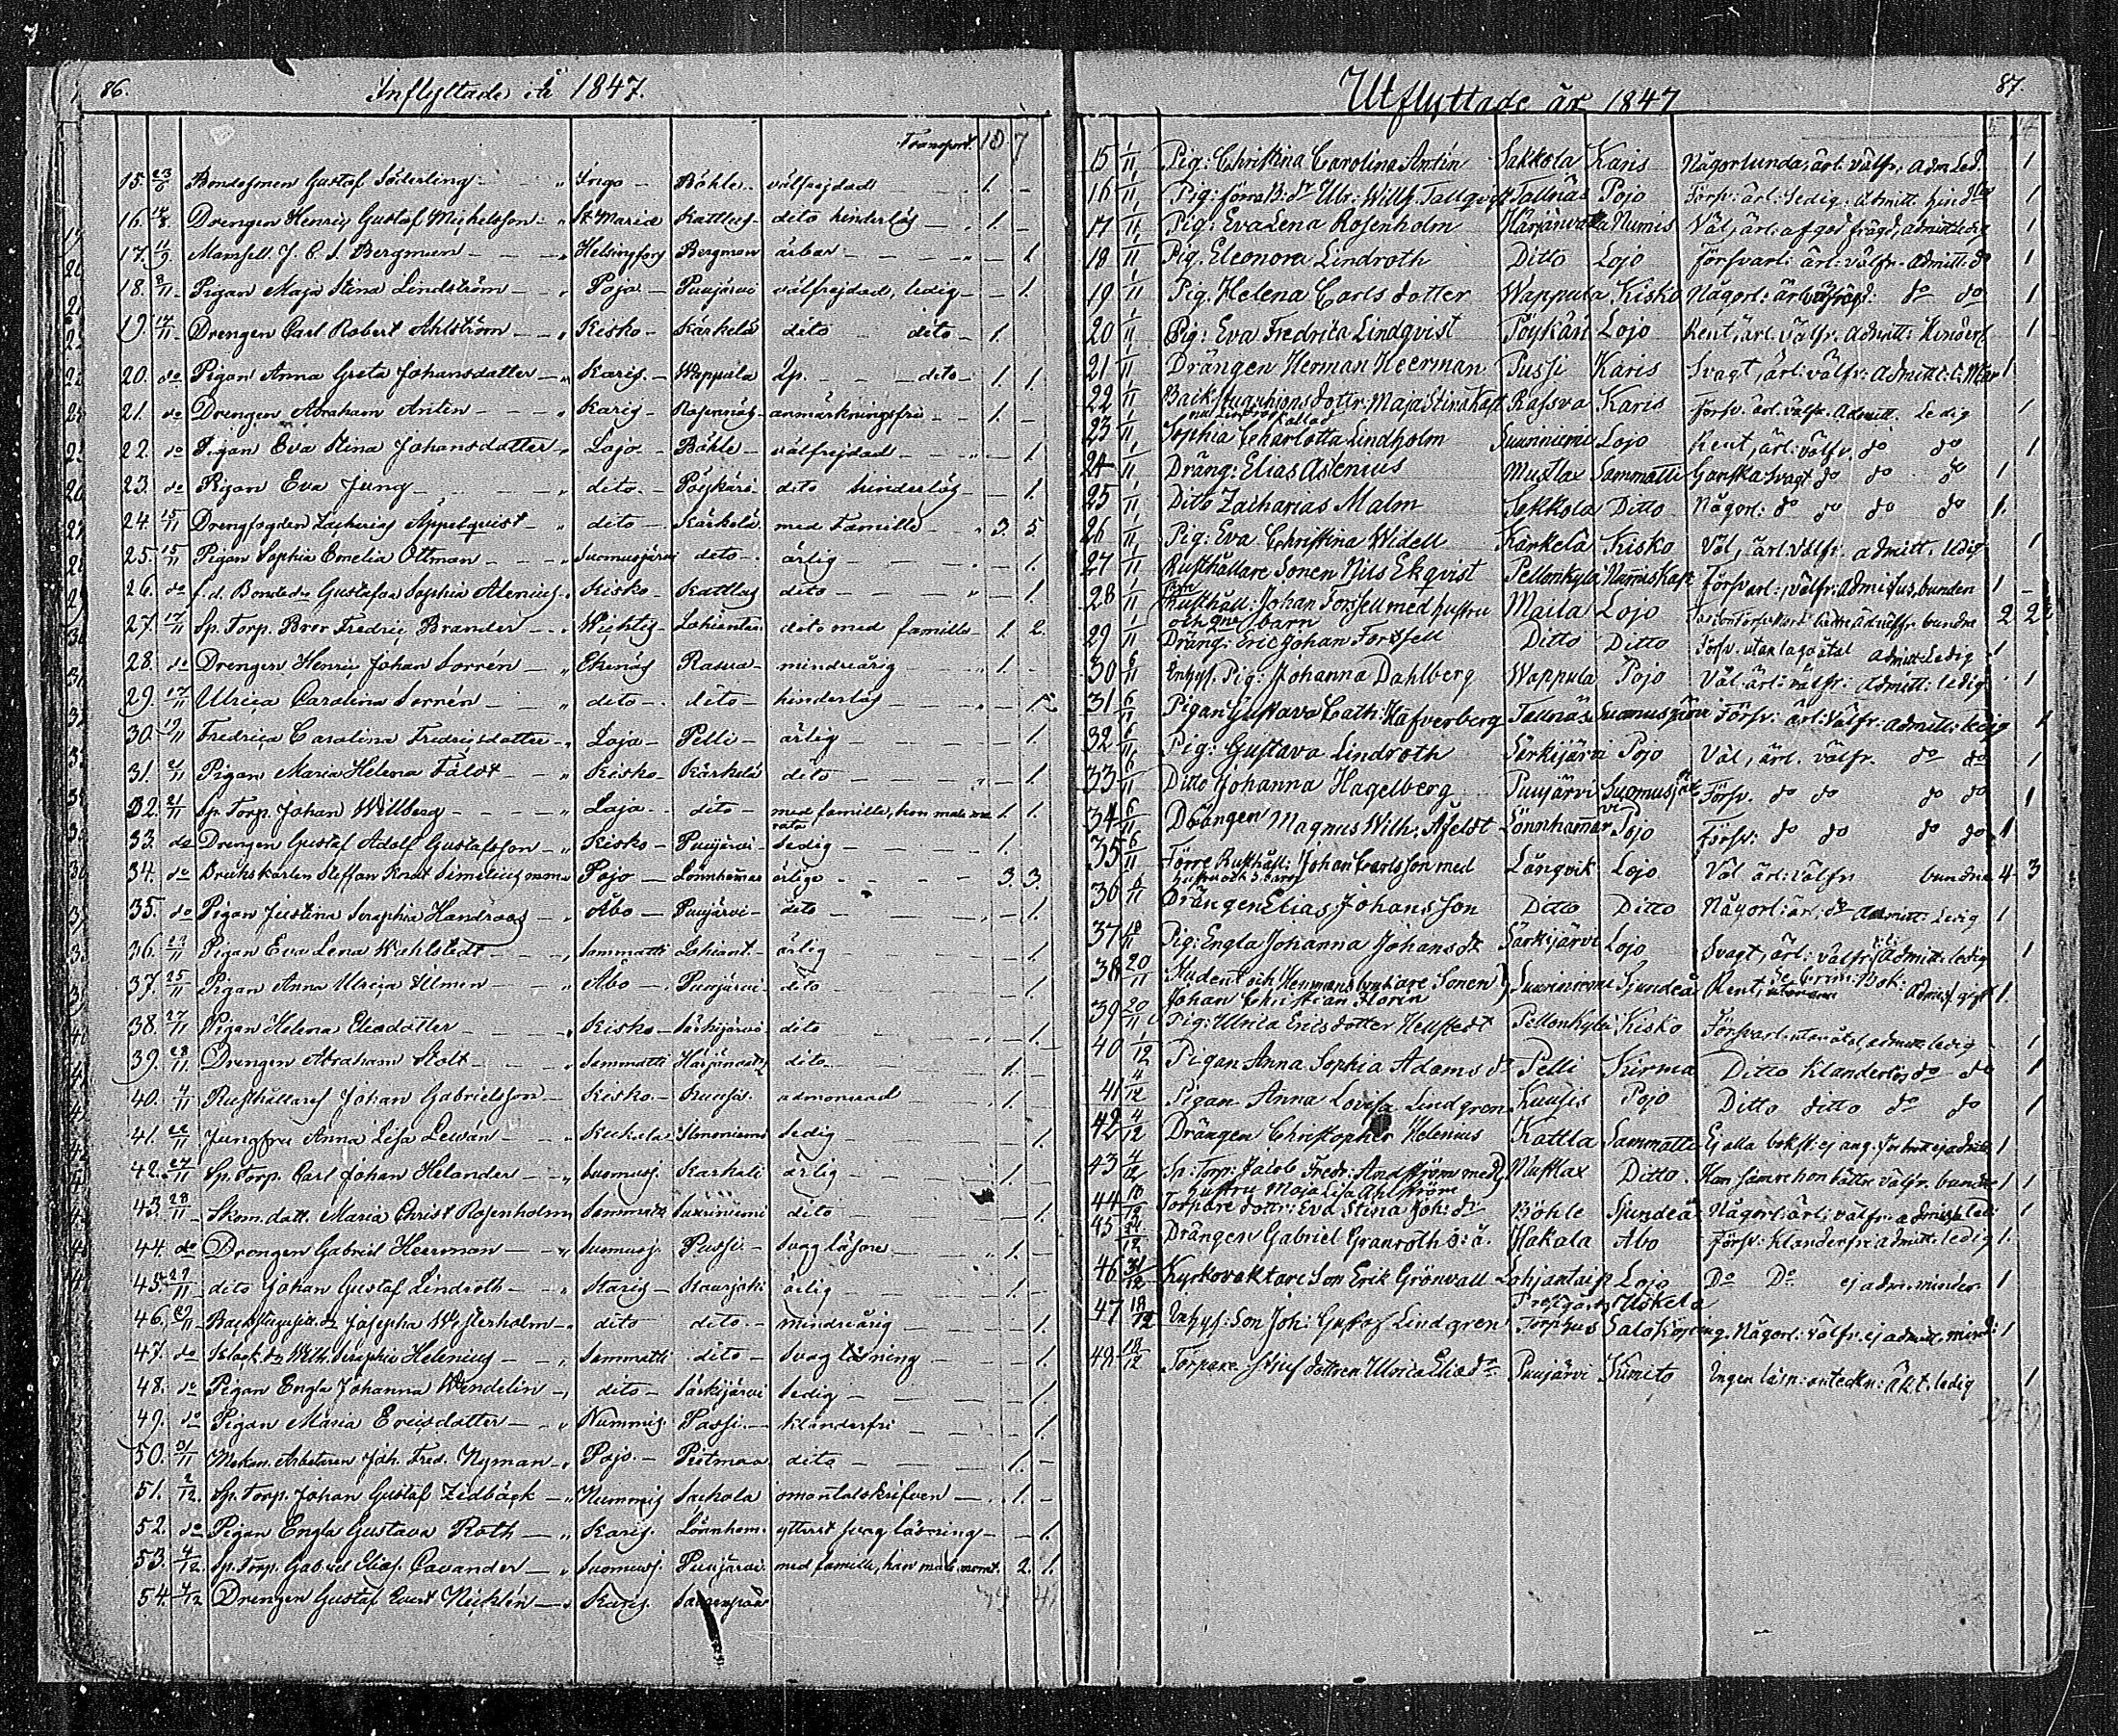 86.
Inflyttade år 1847.
Transport. 10 7
15. 23/6 Bondesonen Gustaf Söderling " Ingo Böhle välfrejdad 1. -
16. 14/8 Drengen Henric Gustaf Michelsson " St. Marie Kattlus dito hinderlös 1. -
17. 11/9 Mamsell J. C. S. Bergman Helsingfors Bergman ärbar - 1
18. 8/11 Pigan Maja Stina Lindström " Pojo Puujärvi välfrejdad, ledig - 1.
19. 14/11 Drengen Carl Robert Ahlström " Kisko Kärkelä dito dito 1.
20. do Pigan Anna Greta Johansdotter " Karis Wappula dito 1. 1.
21. do Drengen Abraham Antin " Karis anmärkningsfri 1. -
22. do Pigan Eva Stina Johansdotter " Lojo Böhle välfrejdad - 1
23. do Pigan Eva Jung " dito Pöykäri dito hinderlös - 1.
24. 15/11 Drengfogden Zacharias Äppelquist " dito Kärkelä med Famille 3. 5.
25. 15/11 Pigan Sophia Emelia Ottman " Suomusjärvi dito ärlig - 1.
26. do f. d. Bonded. Gustafva Sophia Alenius " Kisko Kattlus dito - 1.
27. 17/11 Sp. Torp. Bror Fredric Brander " Wichtis Lohiantai dito med famille 1. 2.
28. do Drengen Henric Johan Sorrén " Ekenäs Rasva mindreårig 1. -
29. 17/11 Ulrica Carolina Sorrén " dito dito hinderlös - 1.
30. 19/11 Fredrica Carolina Fredricsdotter " Lojo Pelli ärlig - 1.
31. 21/11 Pigan Maria Helena Fält " Kisko Kärkelä dito - 1.
32. 21/11 Sp. Torp. Johan Willberg " Lojo dito med famille, hon 1. 1.
33. do Drengen Gustaf Adolf Gustafsson " Kisko Puujärvi ledig 1.
34. do Bruks karlen Steffan Simelius Pojo Lönnhamar ärlige 3. 3.
35. do Pigan Justina Seraphia Handroos " Åbo Puujärvi dito - 1.
36. 23/11 Pigan Eva Lena Wahlstedt " Sammatti Lohiant. ärlig - 1.
37. 25/11 Pigan Anna Ulrica Ilmén " Åbo Puujärvi dito - 1.
38. 27/11 Pigan Helena Eliedotter " Kisko Särkijärvi dito - 1.
39. 28/11 Drengen Abraham Stolt " Sammatti Härjänvatz dito 1. -
40. 4/11 Rusthållares Johan Gabrielsson " Kisko Kuusis admonerad 1. -
41. 22/11 Jungfru Anna Lisa Lewán " Kuckala Ilmoniemi ledig 1.
42. 27/11 Sp. Torp. Carl Johan Helander " Suomusj. Karkali ärlig 1. -
43. 28/11 Skom. dott. Maria Christ. Rosenholm Sammatti Suurniemi dito - 1.
44. do Drengen Gabriel Heerman " Suomusj. Pussi svag läsare 1. -
45. 27/11 dito Johan Gustaf Lindroth " Karis ärlig 1.
46. 29/11 Josepha Westerholm " dito dito mindreårig 1.
47. do Wilh. Seraphia Helenius Sammatti dito svag läsning 1.
48. do Pigan Engla Johanna Wendelin dito Särkijärvi ledig 1.
49. do Pigan Maria Ericsdotter Nummis Pussi klanderfri 1.
50. 31/11 Mekan. Arbetaren Joh. Fred. Nyman Pojo Pitmaa dito 1. -
51. 2/12 Sp. Torp. Johan Gustaf Zidbäck Nummis Sackola omantalskrifven 1. -
52. do Pigan Engla Gustava Roth Karis Lönnham. ytterst svag läsning - 1.
53. 4/12 Sp. Torp. Gabriel Elias Cavander Suomusj. Puujärvi med famille, 2. 1.
54. 4/12 Drengen Gustaf Evert Nicklén Karis
87.
Utflyttade år 1847
15 1/11 Pig: Christina Carolina Antin Sakkola Karis Någorlunda, ärl. välfr. adm. Led. 1
16 1/11 Pig: förra B: dr Ulr: Willh. Tallqvist Tallnäs Pojo Försv: ärl: ledig: admitt: hin 1
17 1/11 Pig: Eva Lena Rosenholm Härjänvatta Numis Väl, ärl: af god frägd, admitt ledig 1
18 1/11 Pig. Eleonora Lindroth Ditto Lojo Försvarl: ärl: välfr. admitt: do 1
19 1/11 Pig. Helena Carls dotter Wappula Kisko Någorl: ärl: do do 1
20 1/11 Pig: Eva Fredrica Lindqvist Pöykäri Lojo Rent, ärl. välfr. admitt: Hinderl 1
21 1/11 Drängen Herman Heerman Pussi Karis Svagt, ärl: välfr: admitt: 1
22 1/11 Maja Stina Rasva Karis Försv. ärl. välfr. admitt. Ledig 1
23 1/11 Sophia Charlotta Lindholm Suurniemi Lojo Rent, ärl: välfr. do do 1
24 1/11 Dräng: Elias Astenius Mustlax Sammatti Ganska svagt do do do 1
25 1/11 Ditto Zacharias Malm Sakkola Ditto Någorl: do do do do 1.
26 1/11 Pig: Eva Christina Widell Kärkelä Kisko Väl, ärl. välfr. admitt. ledig 1
27 1/11 Rusthållare Sonen Nils Ekqvist Pellonkylä Nummis Kapl Försv arl: välfr: obunden 1 -
28 1/11 Rusthåll: Johan Forssell med hustru Maila Lojo bundna 2 2
och barn
29 1/11 Dräng: Eric Johan Forssell Ditto Ditto Försv. utan laga åtal admitt Ledig 1
30 6/11 Inhys. Pig: Johanna Dahlberg Wappula Pojo Väl ärl: välfr: admitt: ledig 1
31 6/11 Pigan Gustava Cath: Hafverberg Tallnäs Suomusjärvi Försv: ärl: välfr: admitt: ledig 1
32 6/11 Pig: Gustava Lindroth Särkijärvi Pojo Väl, ärl. välfr. do do 1
33 6/11 Ditto Johanna Hagelberg Puujärvi Suomusjärvi Försv. do do do do 1
34 6/11 Drängen Magnus Wilh: Afeldt Lönnhammar Pojo Försv: do do do do 1
35 6/11 Förre Rusthåll: Johan Carlsson med Långvik Lojo Väl ärl: välfr bundna 4 3
hustru och 5 barn
36 6/11 Drängen Elias Johansson Ditto Ditto Någorl: ärl: do admitt: Ledig 1
37 18/11 Pig: Engla Johanna Johans dr Särkijärvi Lojo Svagt, ärl: välfr: admitt: ledig 1
38 20/11 Student och Sonen Suurniemi Sjundeå Rent, 1.
Johan Christian Florin
39 20/11 Pig: Ulrica Erics dotter Hellstedt Pellonkylä Kisko Försvarl: utan åtal, admitt: ledig 1
40 1/12 Pigan Anna Sophia Adams dr Pelli Kirma Ditto Klanderlös do do 1
41 4/12 Pigan Anna Lovisa Lindgren Kuusis Pojo Ditto ditto do do 1
42 4/12 Drängen Christopher Helenius Kattla Sammatti Ej alla 1
43 4/12 Sp: Torp: Jacob Fredr: Andström med Mustlax Ditto. Han sämre hon bättre välfr. bundne 1 1
hustru Maja Lisa Ahlström
44 18/12 Torpare dottr: Eva Stina Joh: dr Böhle Sjundeå Någorl: ärl: välfr: admitt led: 1
45 24/12 Drängen Gabriel Granroth Hakala Åbo Försv: Klanderfri: admitt: ledig 1.
46 31/12 Kyrkovaktare Son Erik Grönvall Lohjantaip Lojo Do Do ej adm. minder 1
47 18/12 Inhys: Son Joh: Gustaf Lindgren Torphus Uskela Salo Någorl: välfr. ej admitt. mind: 1
48 18/12 Torpare dottren Ulrica Puujärvi Kimito Ingen läsn: anteckn: ledig 1